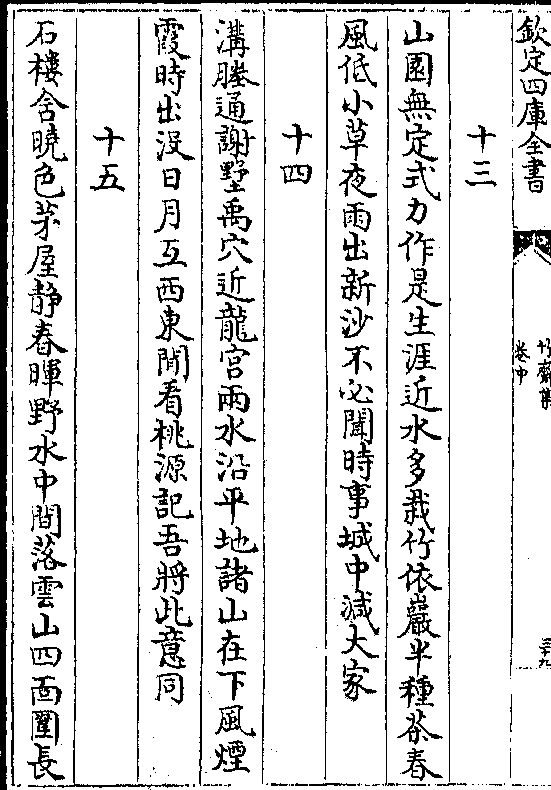 欽定四庫全書
竹齋集
卷中
三十九
十三
山園無定式力作是生涯近水多栽竹依巖半種茶春
風低小草夜雨出新沙不必聞時事城中減大家
十四
溝塍通謝墅禹穴近龍宫兩水沿平地諸山在下風煙
霞時出没日月互西東閒看桃源記吾將此意同
十五
石樓含曉色茅屋静春暉野水中間落雲山四面圍長